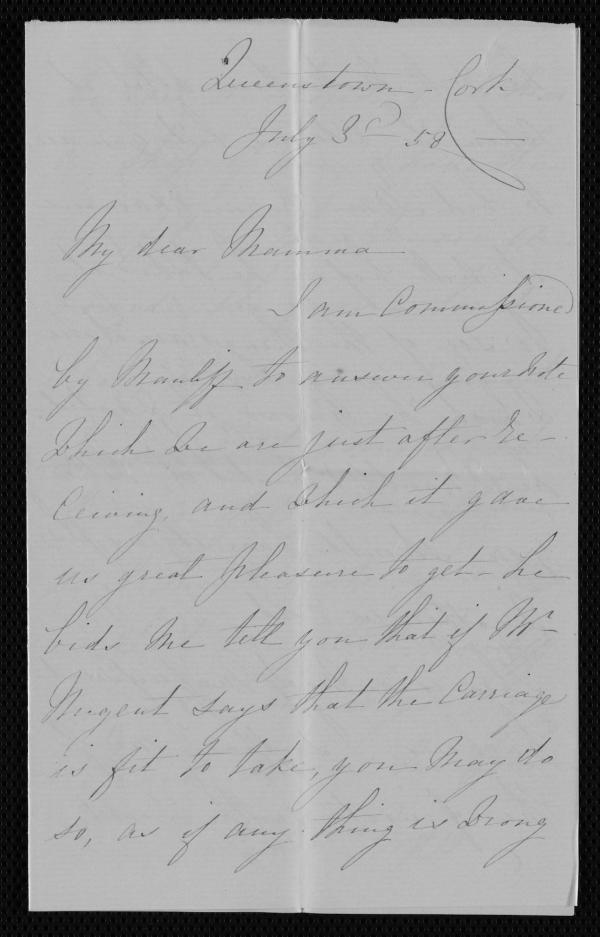 Queenstown - Cork
July 3rd 58
My dear Mamma
I am Commissioned
by to answer your note
Which We are just after re-
ceiving, and Which it gave
us great pleasure to get - he
bids Me tell you that if Mr
Nugent says that the Carriage
is fit to take, you May do
so, as if any thing is Wrong